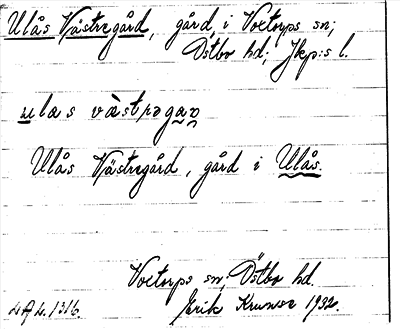 Ulås Västregård, gård i Voetorps sn;
Östbo hd; Jkp:s l.
ulas västrəga
Ulås Västregård, gård i Ulås.
Voetorps sn; Östbo hd.
Erik 1932.